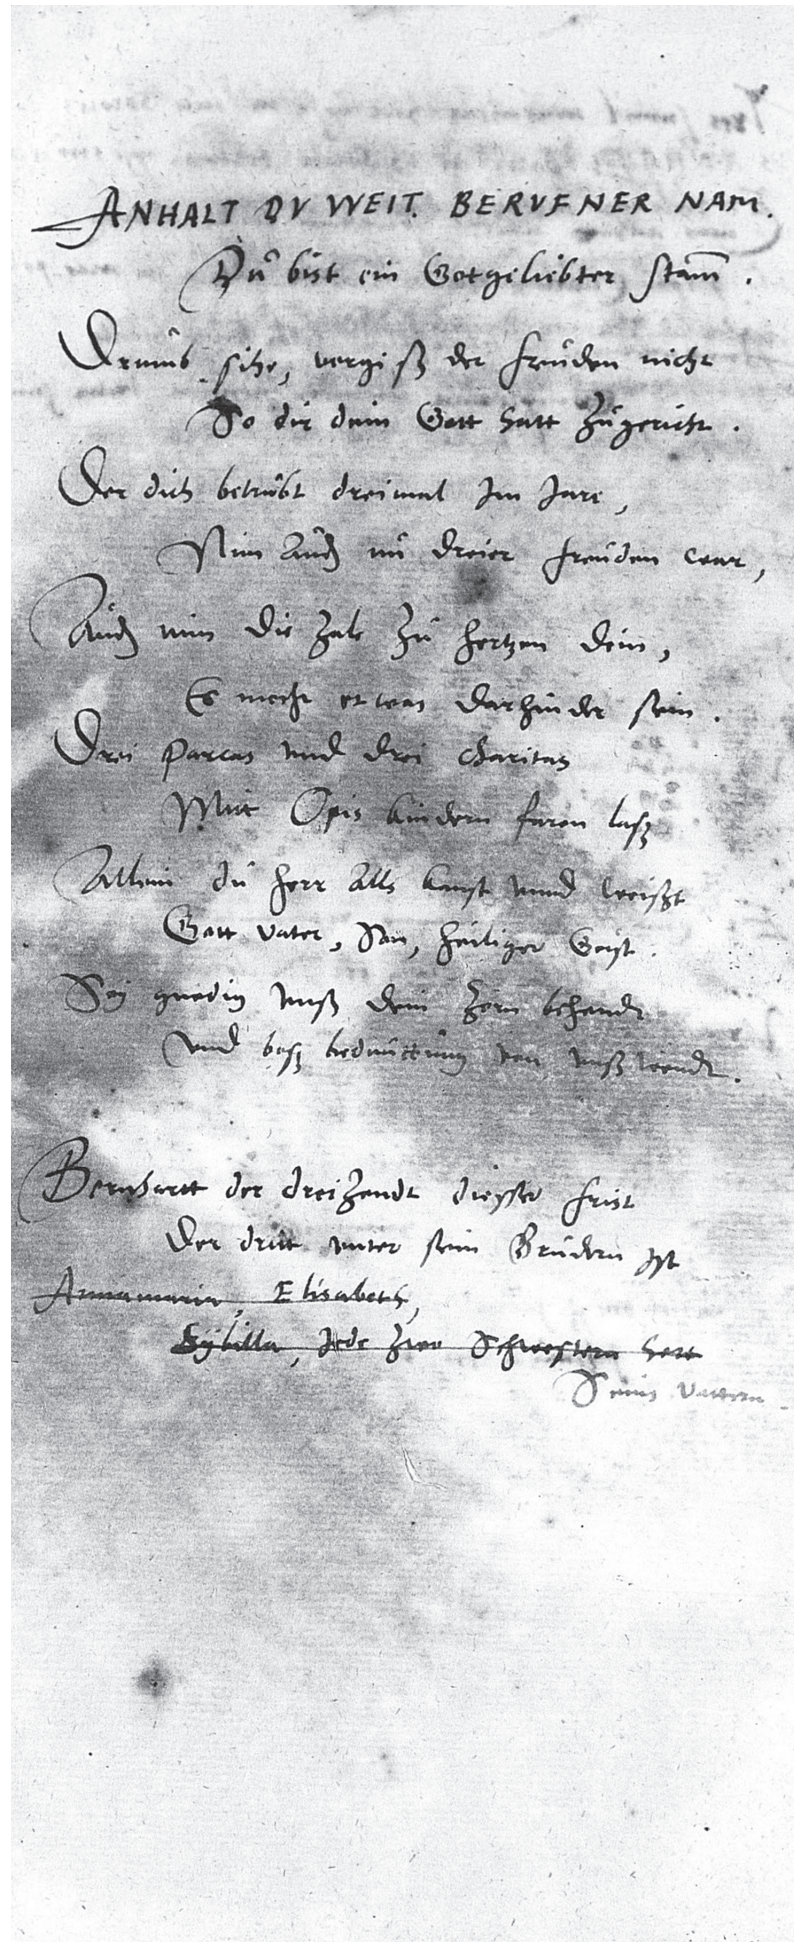 ANHALT DV WEIT. BERVFNER NAM.
Dů bist ein Gotgeliebter stam̄.
Drumb sihe, vergiß der freuden nicht
So dir dein Gott hatt zůgericht.
Der dich betrůbt dreimal Im Jare,
Nim Auch nů dreier freuden war,
Auch nim die zale zů hertzen dein,
Es mocht etwas darhinder sein.
Drei Parcas und drei charitas
Mitt Opis kindern faren lass
Allein dů herr alls kanst unnd weißt
Gott vater, Son, heiliger Geist.
Sei gnedig unß dein zorn behendt
und boß bedeuttung von unß wendt.
Bernhartt der dreizendt dieser frist
Der dritt unter sein Brudern Ist
Annamaria, Elisabeth,
Sybilla, Jede zwo Schwestern hett
Seins Vattern